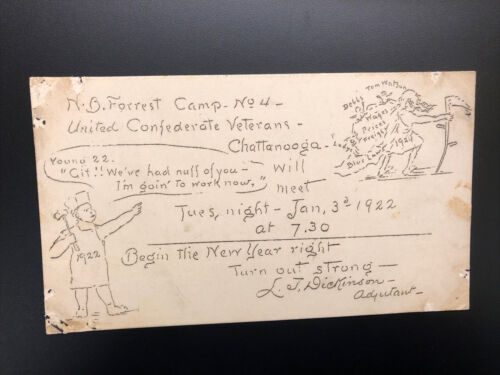 N.B. Forrest Camp - No 4 -
United Confederate Veterans -
Chattanooga -
Will
meet
Tues, night - Jan, 3d 1922
at 7.30
Begin the New Year right
Turn out strong -
L. T. Dickinson -
Adjutant -
Young 22.
"Git!! We've had nuff of you -
I'm goin' to work now,"
1922
Debbs
Tom Watson
Wages
Prices
Freights
Blue Laws
1921